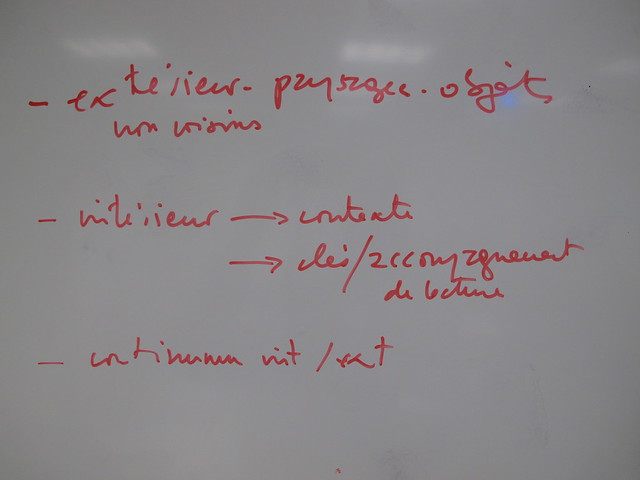 - extérieur - paysage - objets
non voisins
- intérieur → contexte
→ clés/accompagnement
de lecture
- continuum int/ext